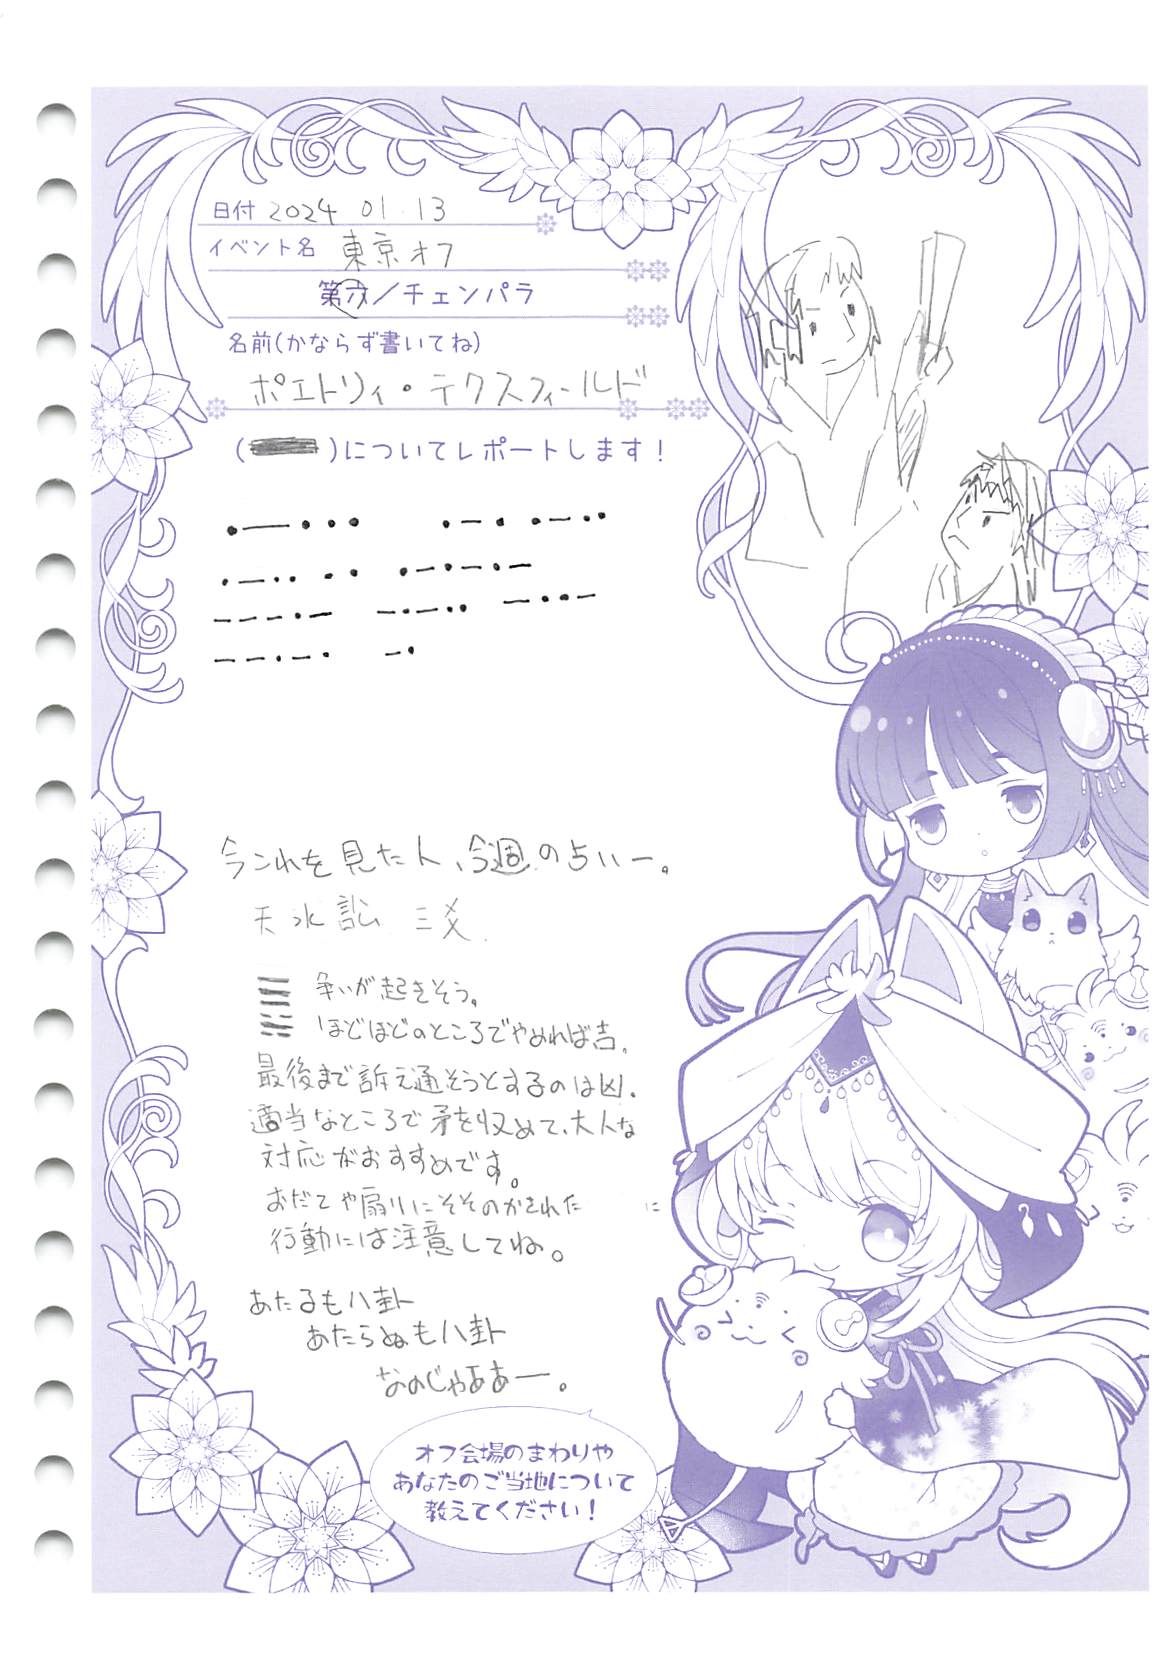 日付 2024 01 13
イベント名 東京オフ
第六/チェンパラ
名前(かならず書いてね)
ポエトリィ・テクスフィールド
( )についてレポートします!
・ー・・・ ・ー・ ・ー・・
・ー・・ ・・ ・ー・ー・ー
ーーー・ー ー・ー・・ ー・・ー
ーー・ー・ ー・
今これを見た人、今週の占いー。
天水訟 三爻.
争いが起きそう。
ほどほどのところでやめれば吉.
最後まで訴え通そうとするのは凶.
適当なところで矛を収めて、大人な
対応がおすすめです。
おだてや扇りにそそのかされた に
行動には注意してね。
あたるも八卦
あたらぬも八卦
なのじゃああー。
オフ会場のまわりや
あなたのご当地について
教えてください!